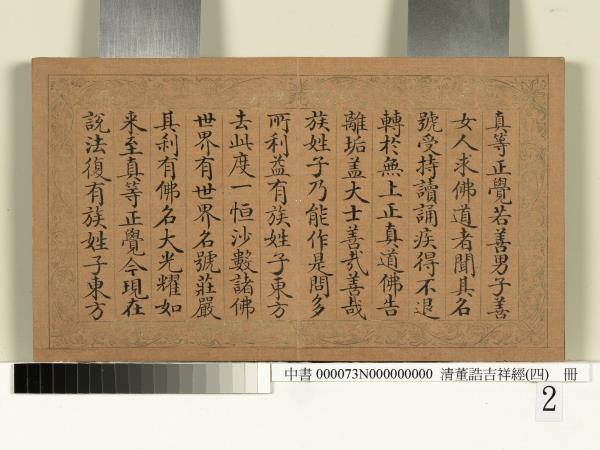 真等正覺若善男子善
女人求佛道者聞其名
號受持讀誦疾得不退
轉於無上正真道佛告
離垢盖大士善哉善哉
族姓子乃能作是問多
所利益有族姓子東方
去此度一恒沙數諸佛
世界有世界名號莊嚴
其刹有佛名大光耀如
来至真等正覺今現在
說法復有族姓子東方
中書 000073N000000000 清董誥吉祥經(四) 冊
2